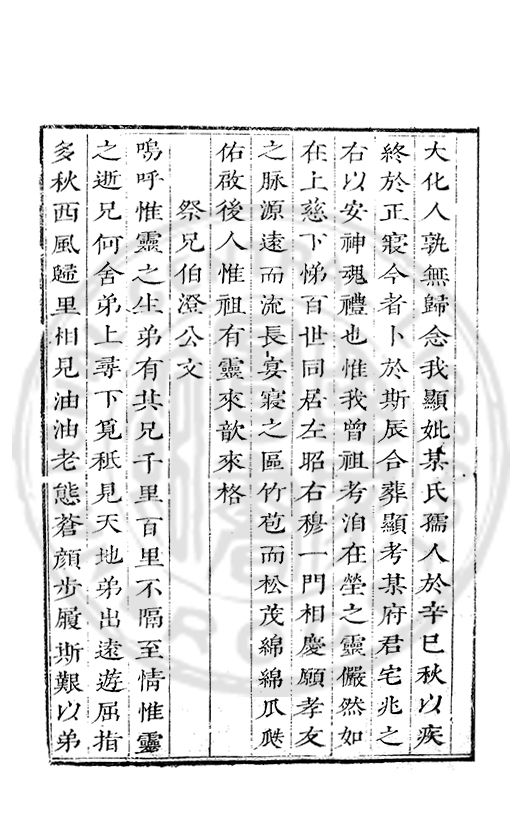 大化人孰無歸念我顯妣某氏孺人於辛巳秋以疾
終於正寢今者卜於斯辰合葬顯考某府君宅兆之
右以安神魂禮也惟我曾祖考洎在塋之靈儼然如
在上慈下悌百世同居左昭右穆一門相慶願孝友
之脉源遠而流長宴寢之區竹苞而松茂綿綿瓜瓞
佑啟後人惟祖有靈來歆來格
祭兄伯澄公文
嗚呼惟靈之生弟有共兄千里百里不隔至情惟靈
之逝兄何舍弟上尋下覓秪見天地弟出遠遊屈指
多秋西風歸里相見油油老態蒼顔步履斯艱以弟